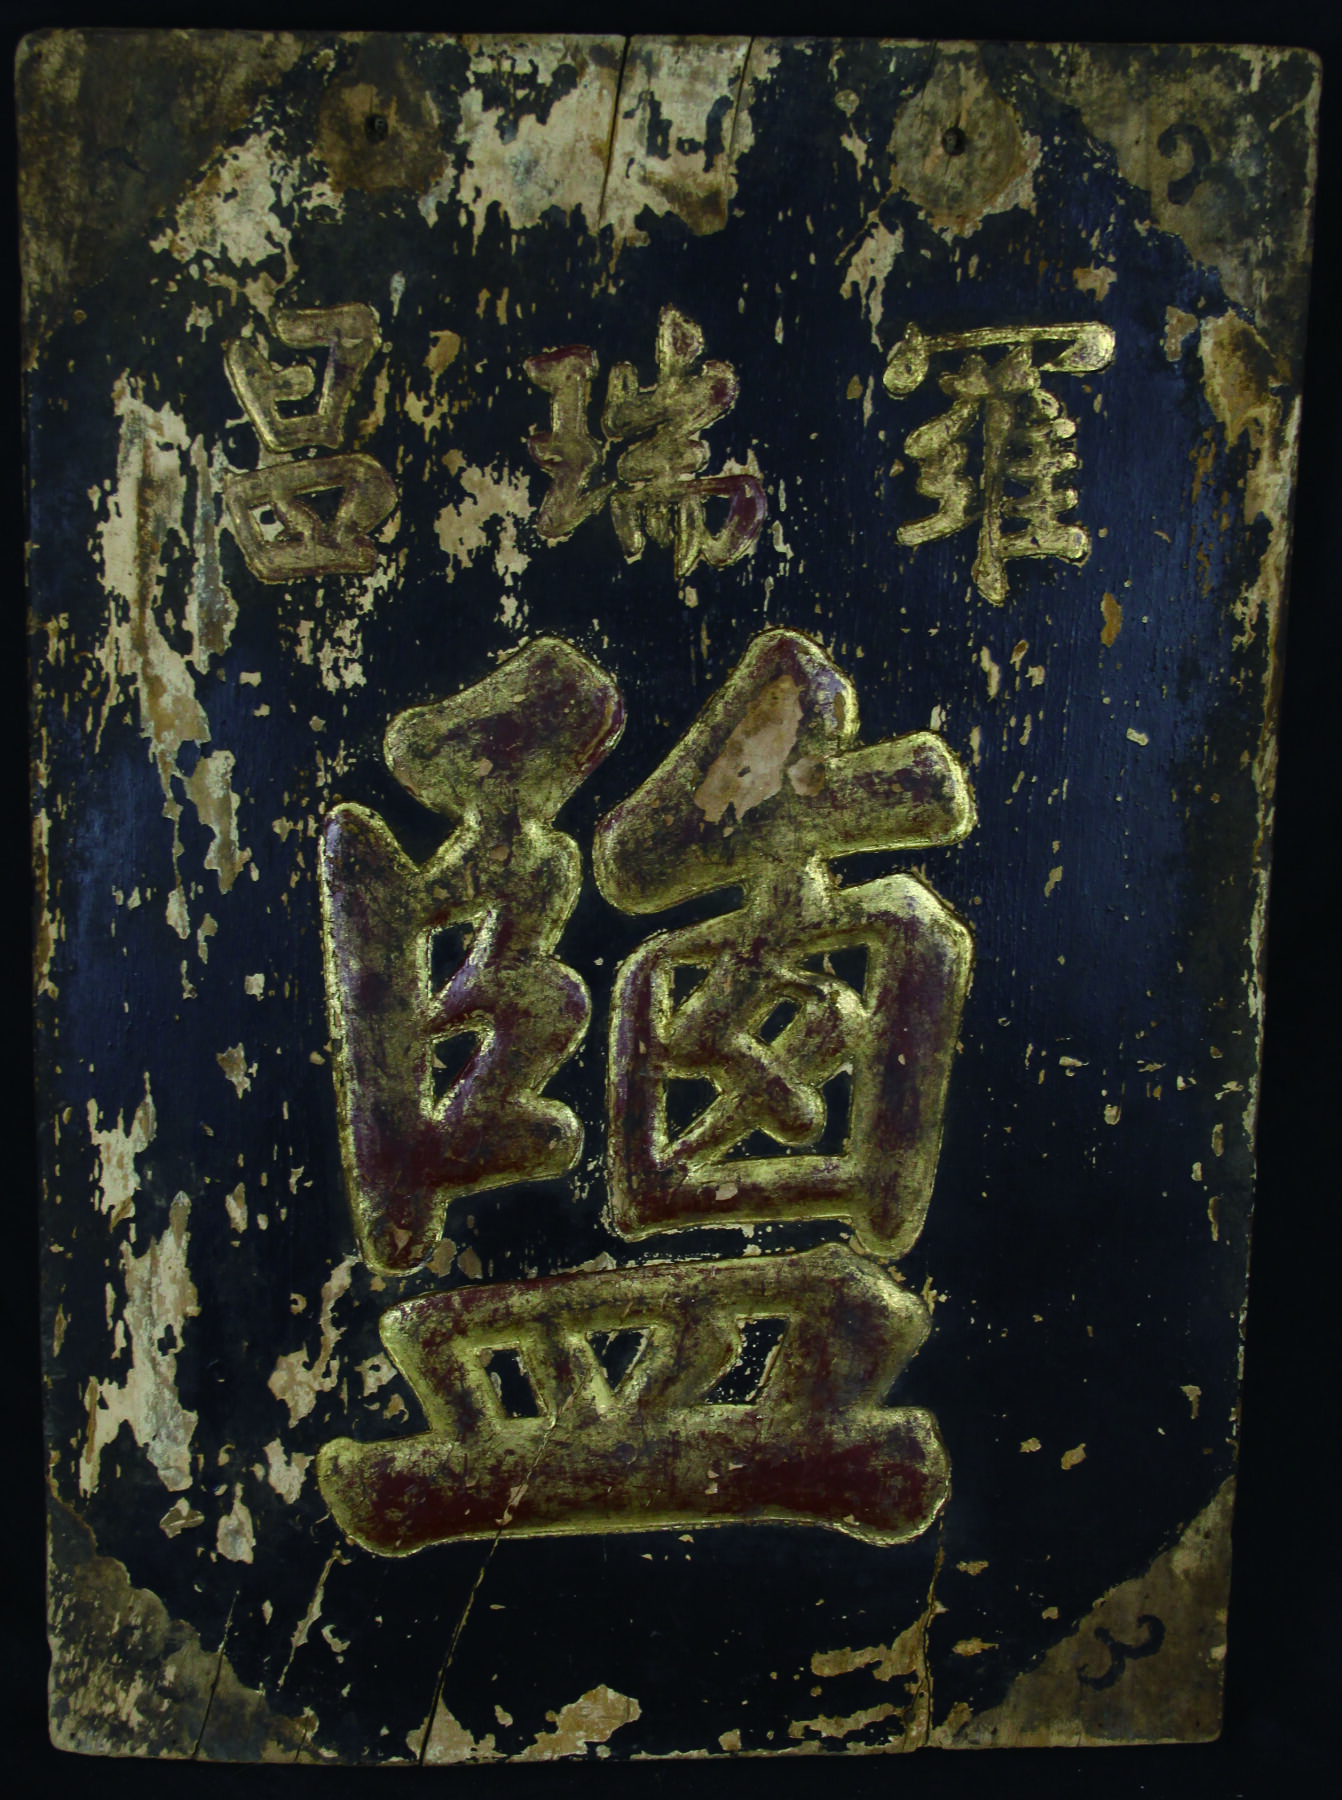 羅瑞昌
鹽